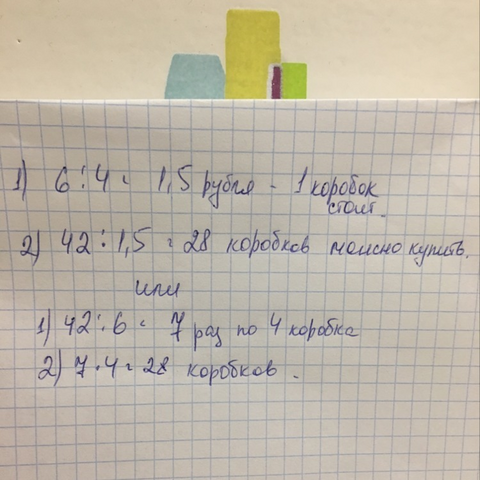 1) 6:4 = 1,5 рубля - 1 коробок
стоит.
2) 42:1,5 = 28 коробков можно купить.
или
1) 42:6 = 7 раз по 4 коробка
2) 7·4 = 28 коробков.